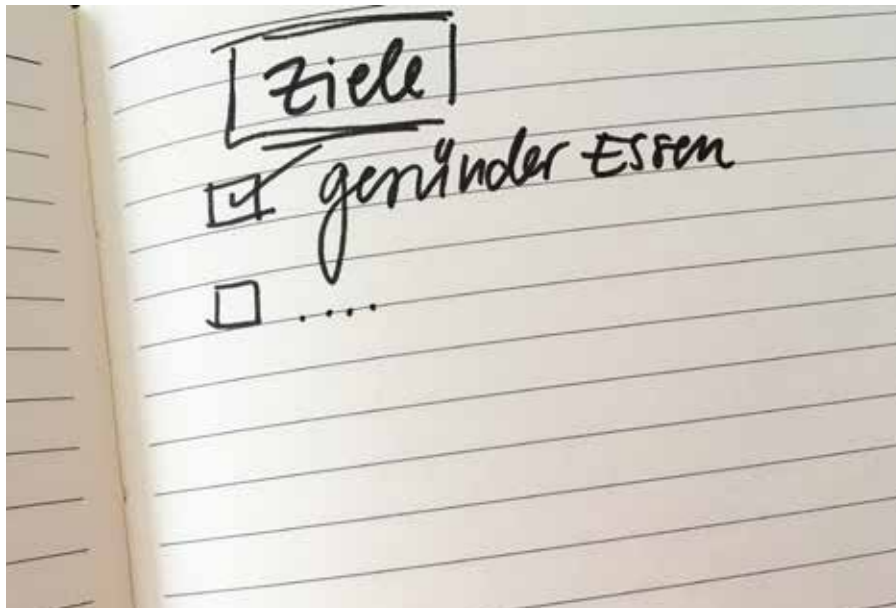 Ziele
gesünder Essen
....